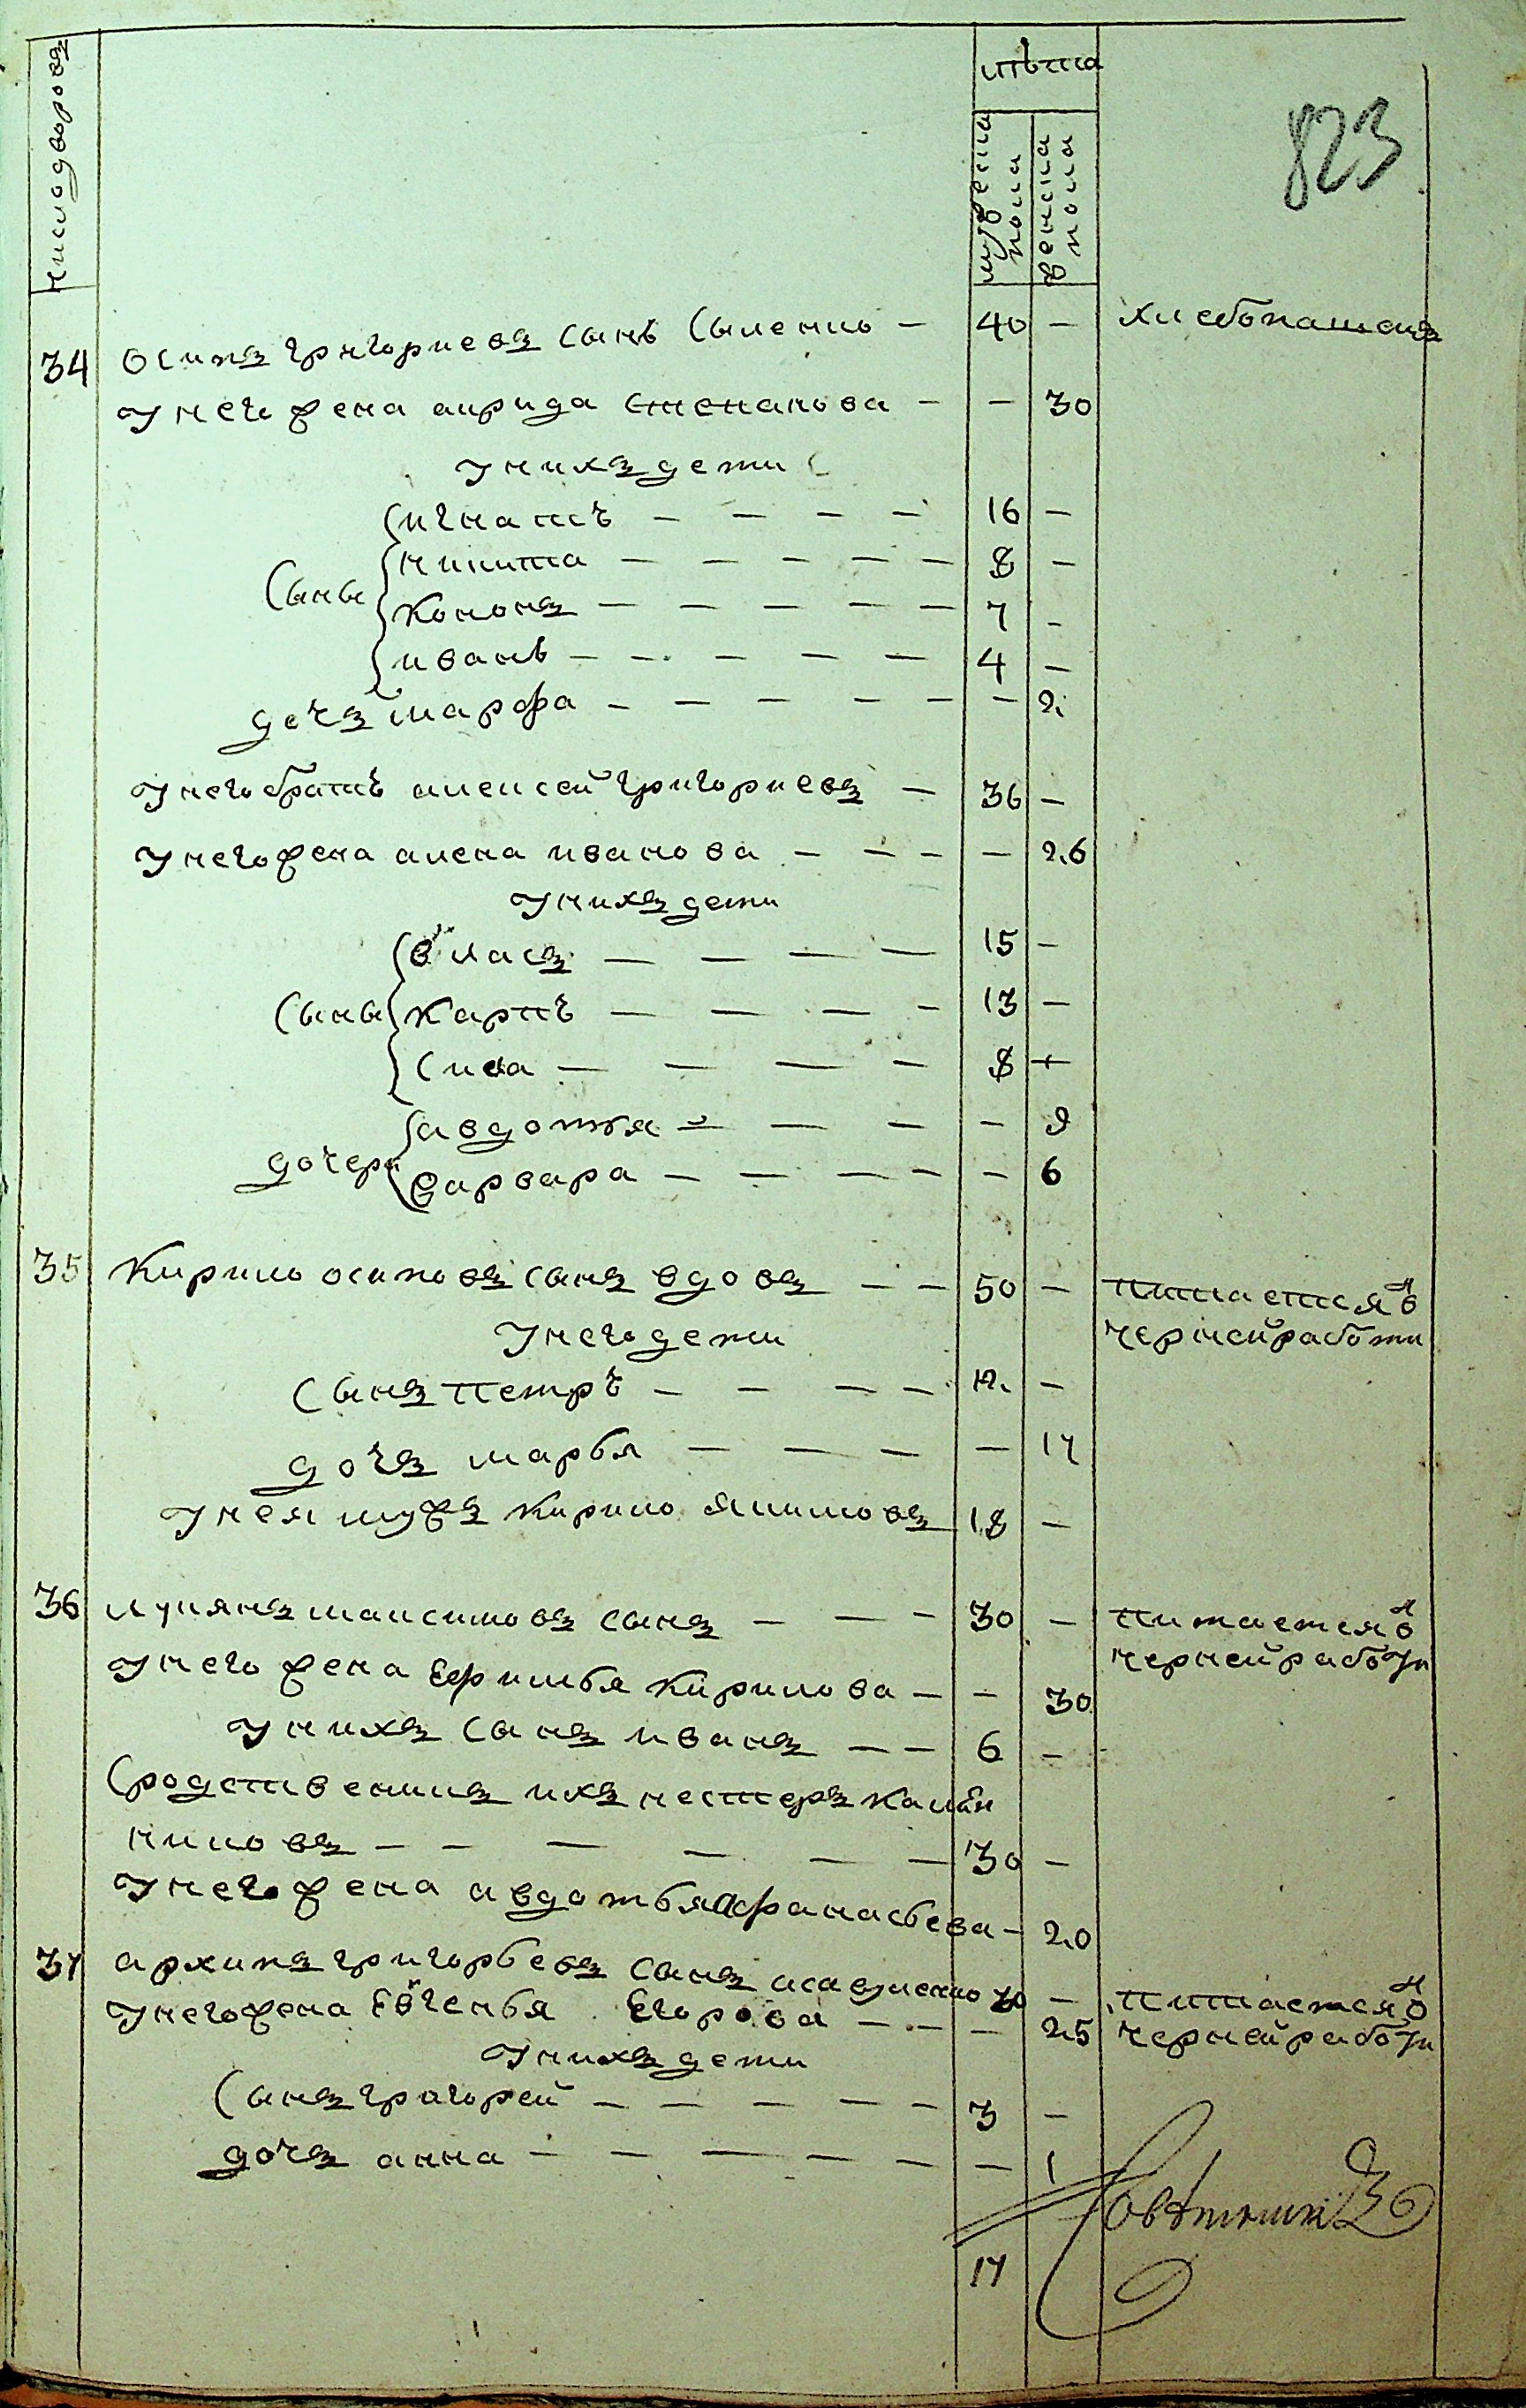 число дворовъ
лѣта
мужеска пола
женска пола
823
34 Осипъ григориевъ сынъ Сыленко — 40 — хлебопашецъ
У него жена аирида степанова — — 30
У нихъ дети
игнатъ — 16 —
никита — 8 —
Сыны кононъ — 7 —
иванъ — 4 —
дочъ марфа — — 2
У него братъ алексей григориевъ — 36 —
У него жена алена иванова — — 26
У нихъ дети
власъ — 15 —
Сыны карпъ — 13 —
Сила — 8 —
авдотья — — 9
дочери варвара — — 6
35 Кирило осиповъ сынъ вдовъ — 50 — питается ѿ
черней работи
У него дети
Сынъ петръ — 12 —
дочъ марья — — 17
У нея мужъ Кирило Якимовъ 18 —
36 лукянъ максимовъ сынъ — 30 — питается ѿ
черней работи
У него жена Ефимья Кирилова — — 30
У нихъ сынъ иванъ — 6 —
Сродственикъ ихъ нестеръ калѣн
никовъ — 30 —
У него жена авдотья Афанасьева — 20
37 архипъ григорьевъ сынъ исавленко 30 — питается ѿ
черней работи
У него жена Евгенья Егорова — — 25
У нихъ дети
Сынъ григорей — 3 —
дочъ анна — — 1
17